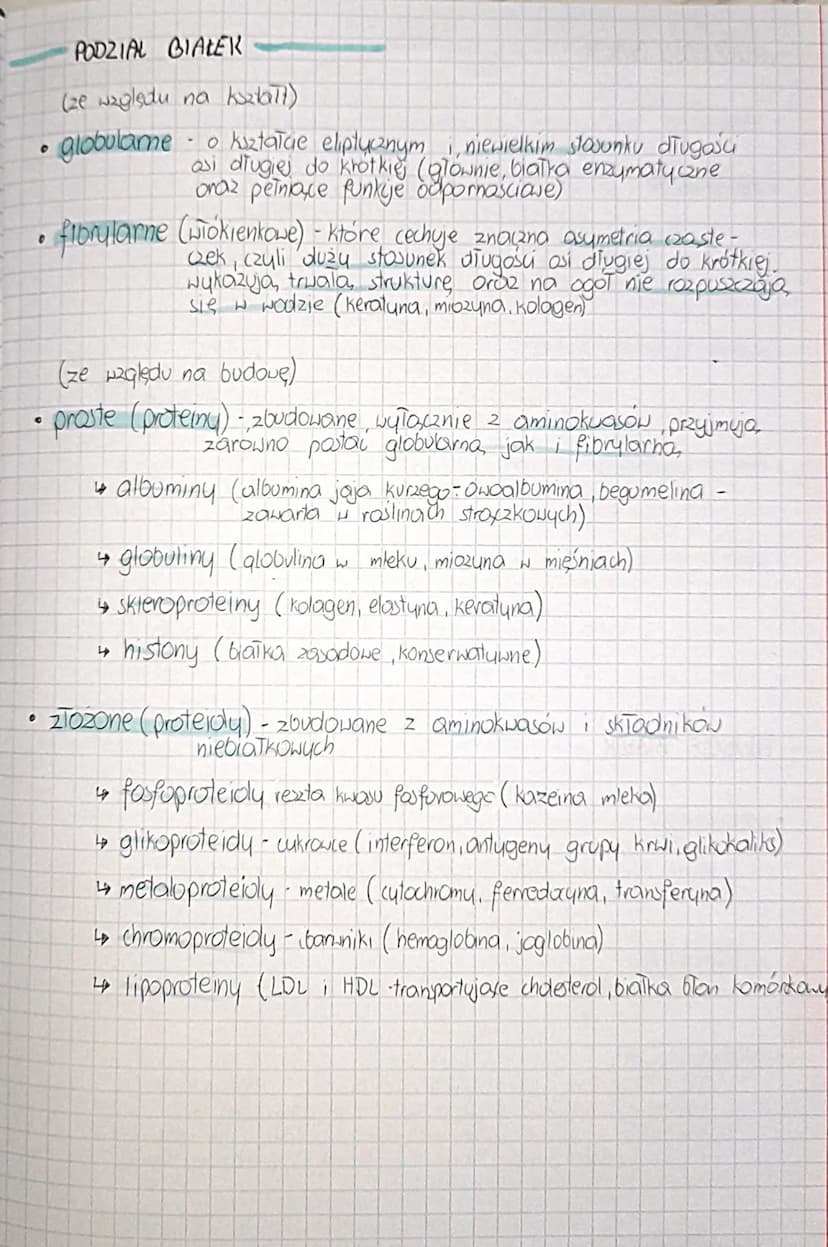 PODZIAŁ BIAŁEK
(ze względu na kształt)
• globularne - o kształcie eliptycznym i niewielkim stosunku długości
osi długiej do krótkiej (głównie białka enzymatyczne
oraz pełniące funkcje odpornościowe)
• fibrylarne (włókienkowe) - które cechuje znaczna asymetria cząste-
czek, czyli duży stosunek długości osi długiej do krótkiej.
wykazują trwałą strukturę oraz na ogół nie rozpuszczają
się w wodzie (keratyna, miozyna, kolagen)
(ze względu na budowę)
• proste (proteiny) - zbudowane wyłącznie z aminokwasów, przyjmują
zarówno postać globularną jak i fibrylarną
↳ albuminy (albumina jaja kurzego - owoalbumina, begumelina -
zawarta w roślinach strączkowych)
↳ globuliny (globulina w mleku, miozyna w mięśniach)
↳ skleroproteiny (kolagen, elastyna, keratyna)
↳ histony (białka zasadowe, konserwatywne)
• złożone (proteidy) - zbudowane z aminokwasów i składników
niebiałkowych
↳ fosfoproteidy reszta kwasu fosforowego (kazeina mleka)
↳ glikoproteidy - cukrowce (interferon, antygeny grupy krwi, glikokaliks)
↳ metaloproteidy - metale (cytochromy, ferredoxyna, transferyna)
↳ chromoproteidy - barwniki (hemoglobina, joglobina)
↳ lipoproteiny (LDL i HDL - transportujące cholesterol, białka błon komórkowy